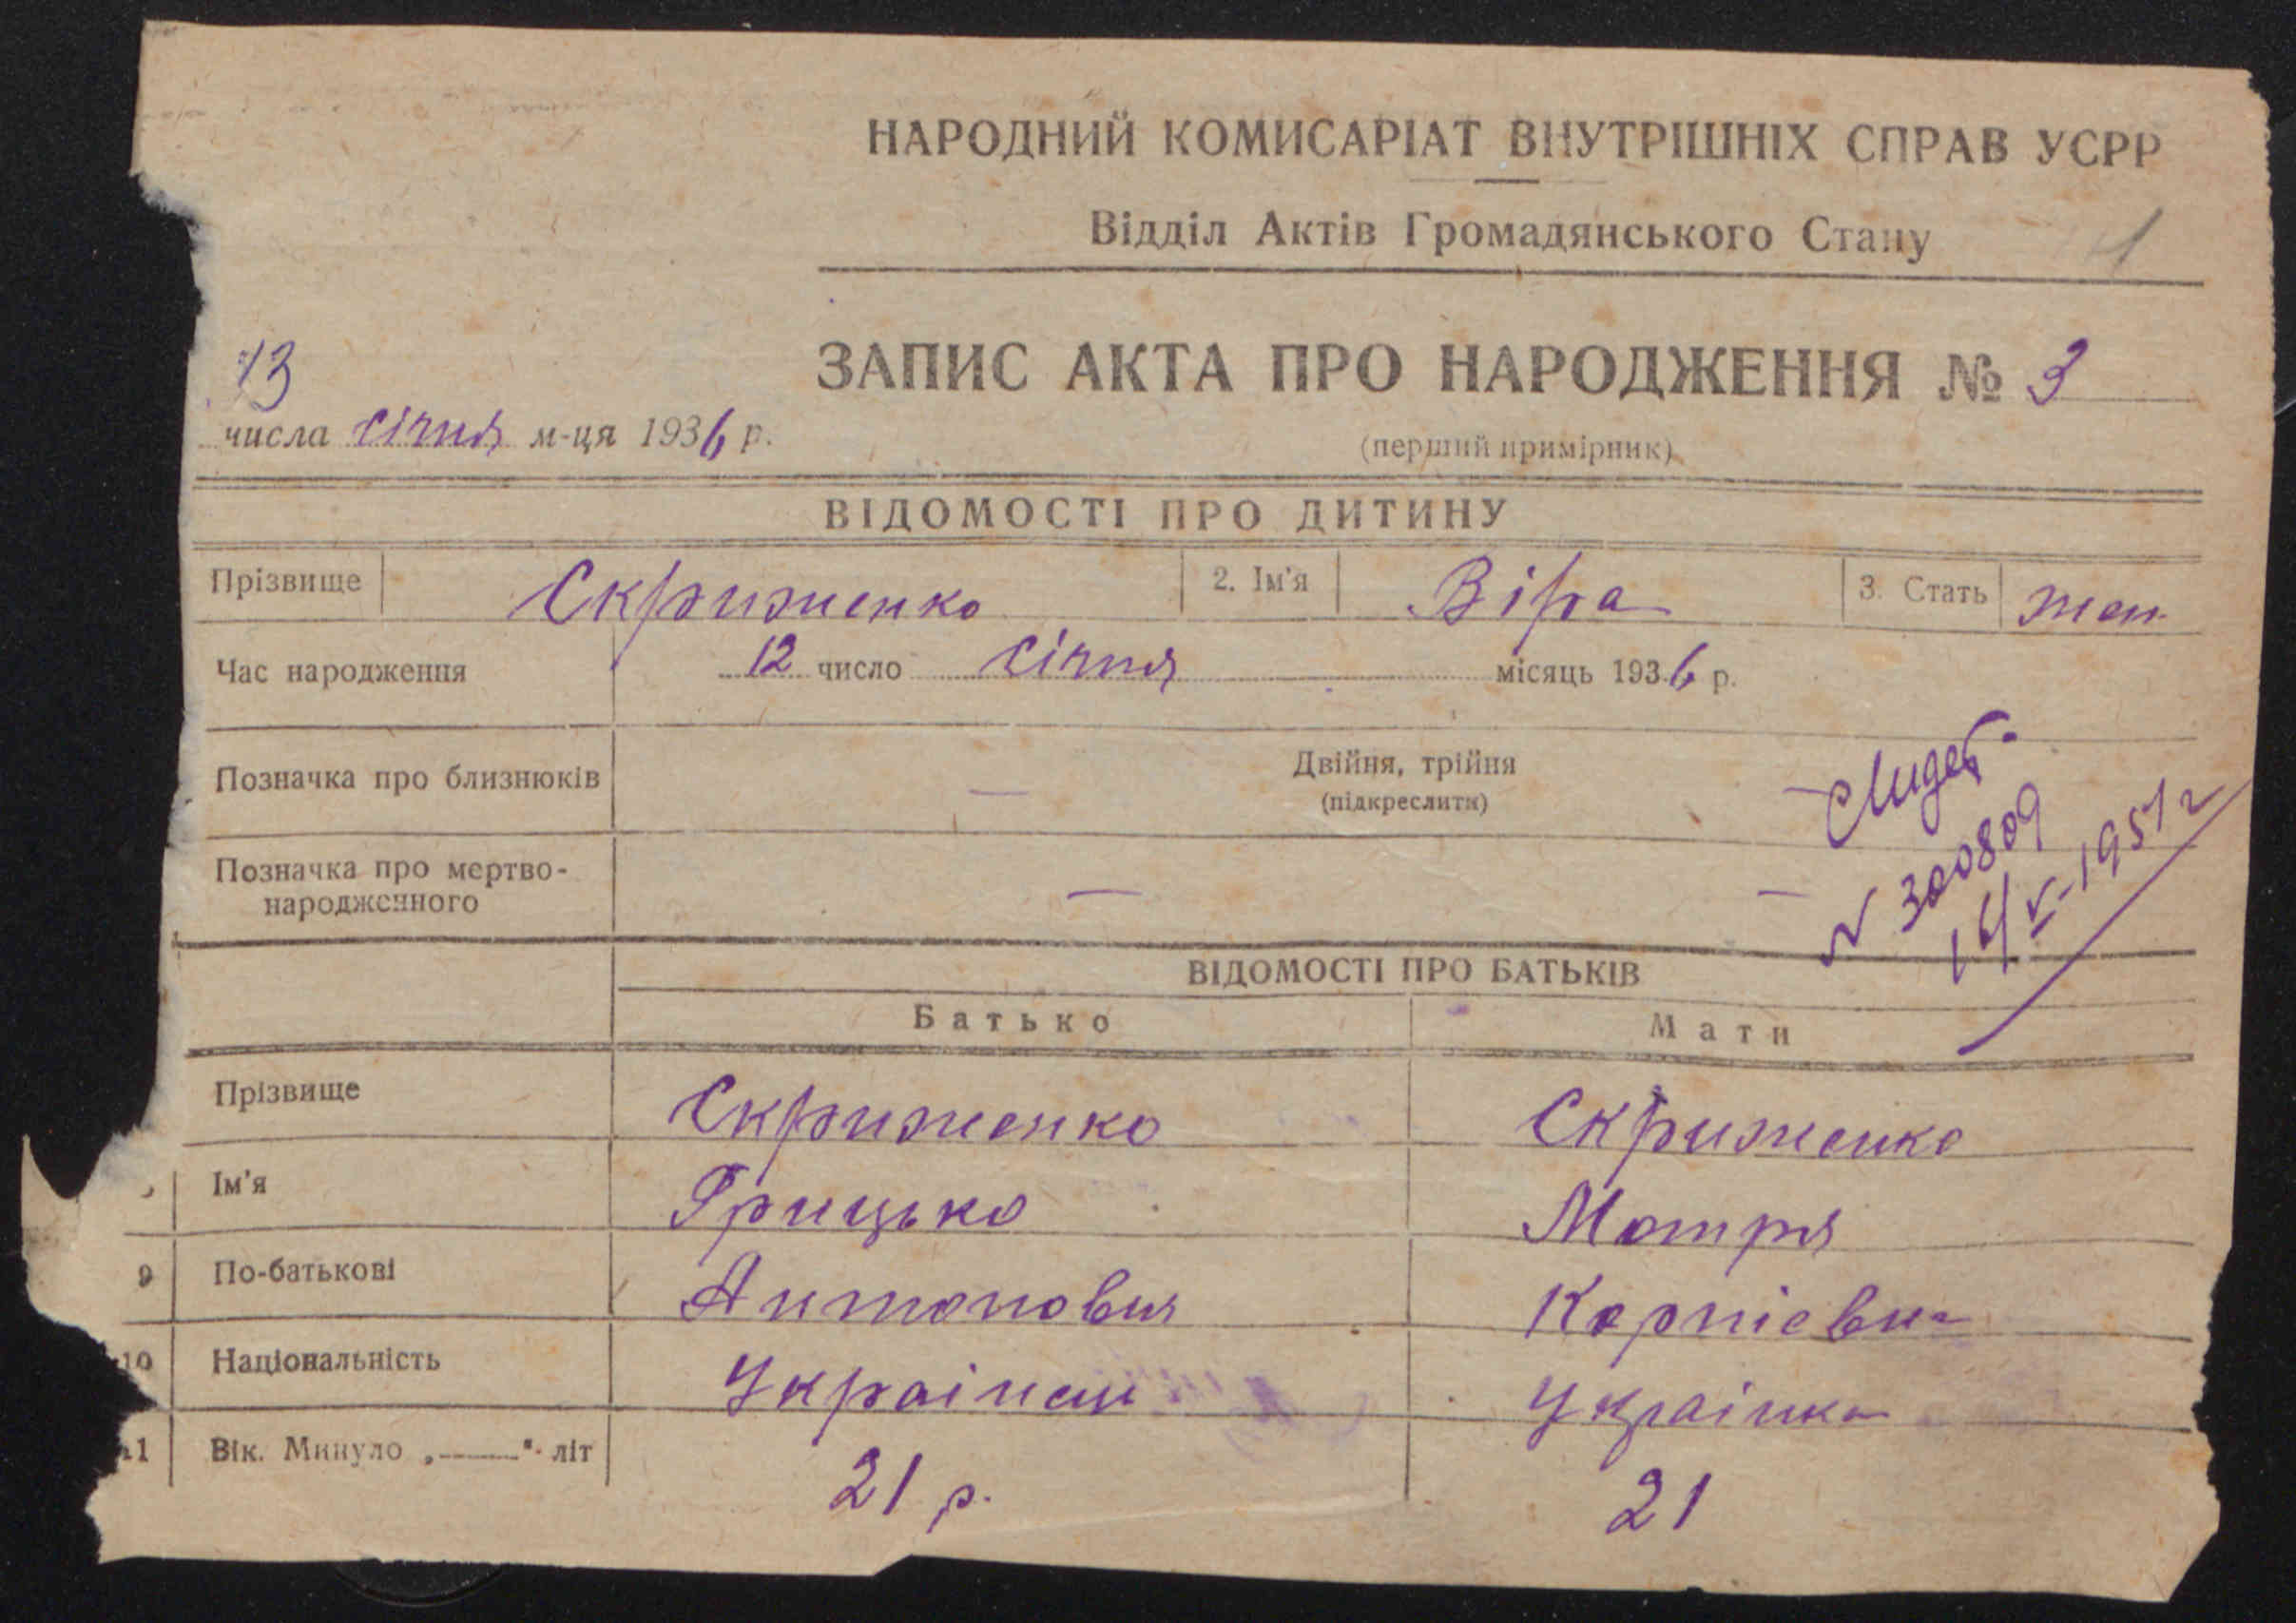 НАРОДНИЙ КОМИСАРІАТ ВНУТРІШНІХ СПРАВ УСРР
Відділ Актів Громадянського Стану
ЗАПИС АКТА ПРО НАРОДЖЕННЯ № 3
13
числа січня м-ця 1936 р.
(перший примірник)
ВІДОМОСТІ ПРО ДИТИНУ
Прізвище Скриженко 2. Ім'я Віра 3. Стать жен.
Час народження 12 число січня місяць 1936 р.
Позначка про близнюків — Двійня, трійня
(підкреслити)
Позначка про мертво-
народженного —
№ 300809
14/V-1951 г
ВІДОМОСТІ ПРО БАТЬКІВ
Батько Мати
Прізвище Скриженко Скриженко
Ім'я Грицько Мотря
9 По-батькові Антонович Корніевна
10 Національність Украінец Украінка
11 Вік. Минуло „——“ літ 21 р. 21